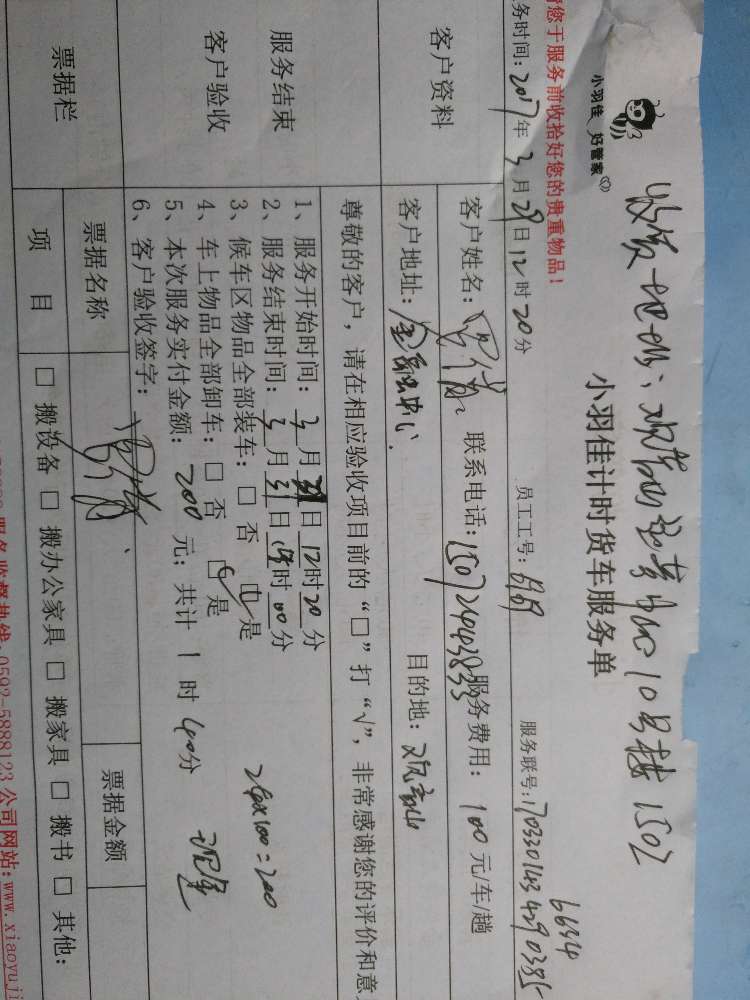 收货地址：观音山 10号楼 1502
小羽佳 好管家
小羽佳计时货车服务单
您于服务前收拾好您的贵重物品！
务时间：2017年3月29日12时20分 员工工号： 服务联号：
6634
客户资料
客户姓名： 联系电话： 服务费用：100元/车/趟
客户地址： 中心 目的地：观音山
尊敬的客户，请在相应验收项目前的“□”打“√”，非常感谢您的评价和意
服务结束
客户验收
1、服务开始时间：3月 日12时20分
2、服务结束时间：3月31日 时00分
3、候车区物品全部装车：□否 □是
4、车上物品全部卸车：□否 □是
5、本次服务实付金额：200元；共计1时40分
6、客户验收签字：
×100=200
票据栏
票据名称 票据金额
项目 □搬设备 □搬办公家具 □搬家具 □搬书 □其他：
服务监督热线：0592-5888123 公司网站：www.xiaoyuji